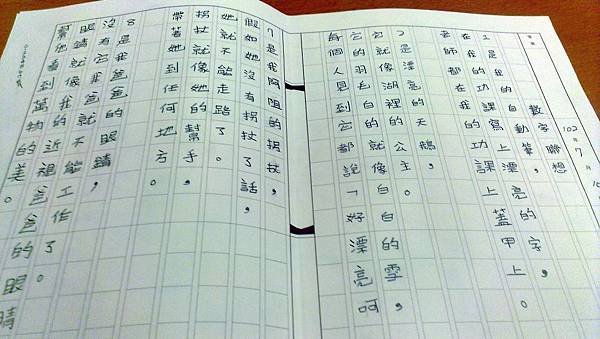 102年7月10
數字聯想
1是我的自動筆，
在我的功課寫上漂亮的字，
老師都在我的功課上蓋甲上。
2是漂亮的天鵝，
它就像湖裡的公主。
它的羽毛白的就像白白的雪，
每個人見到它都說「好漂亮呵
7是我阿祖的拐杖，
假如她沒有拐杖了話，
她就不能走路了。
拐杖就像她的幫手，
帶著她到任何地方。
8是我爸爸的眼鏡，
沒有它我爸爸就不能工作了。
眼鏡就像我的近視爸爸的眼睛
幫他看到萬物的美。